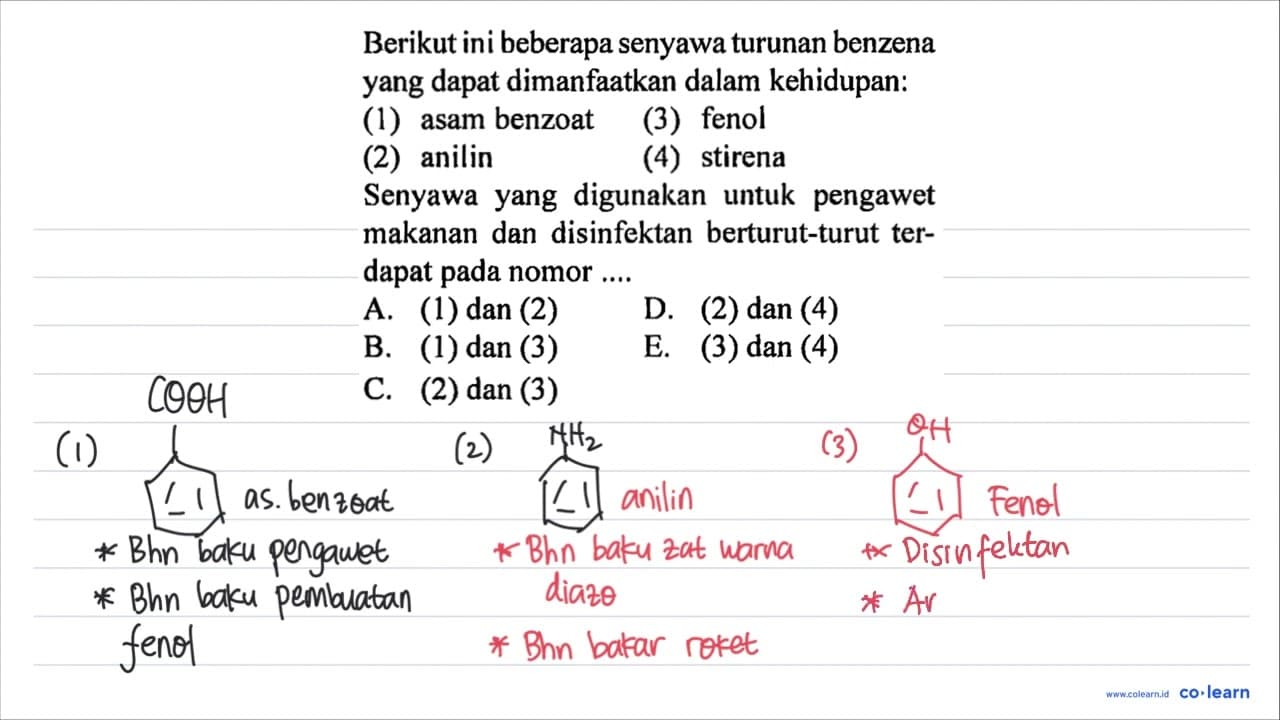 Berikut ini beberapa senyawa turunan benzena
yang dapat dimanfaatkan dalam kehidupan:
(1) asam benzoat (3) fenol
(2) anilin (4) stirena
Senyawa yang digunakan untuk pengawet
makanan dan disinfektan berturut-turut ter-
dapat pada nomor ....
A. (1) dan (2) D. (2) dan (4)
B. (1) dan (3) E. (3) dan (4)
C. (2) dan (3)
COOH
(1)
as. benzoat
* Bhn baku pengawet
* Bhn baku pembuatan
fenol
NH2
(2)
anilin
* Bhn baku zat warna
diazo
* Bhn bakar roket
OH
(3)
Fenol
* Disinfektan
* Ar
www.colearn.id co·learn